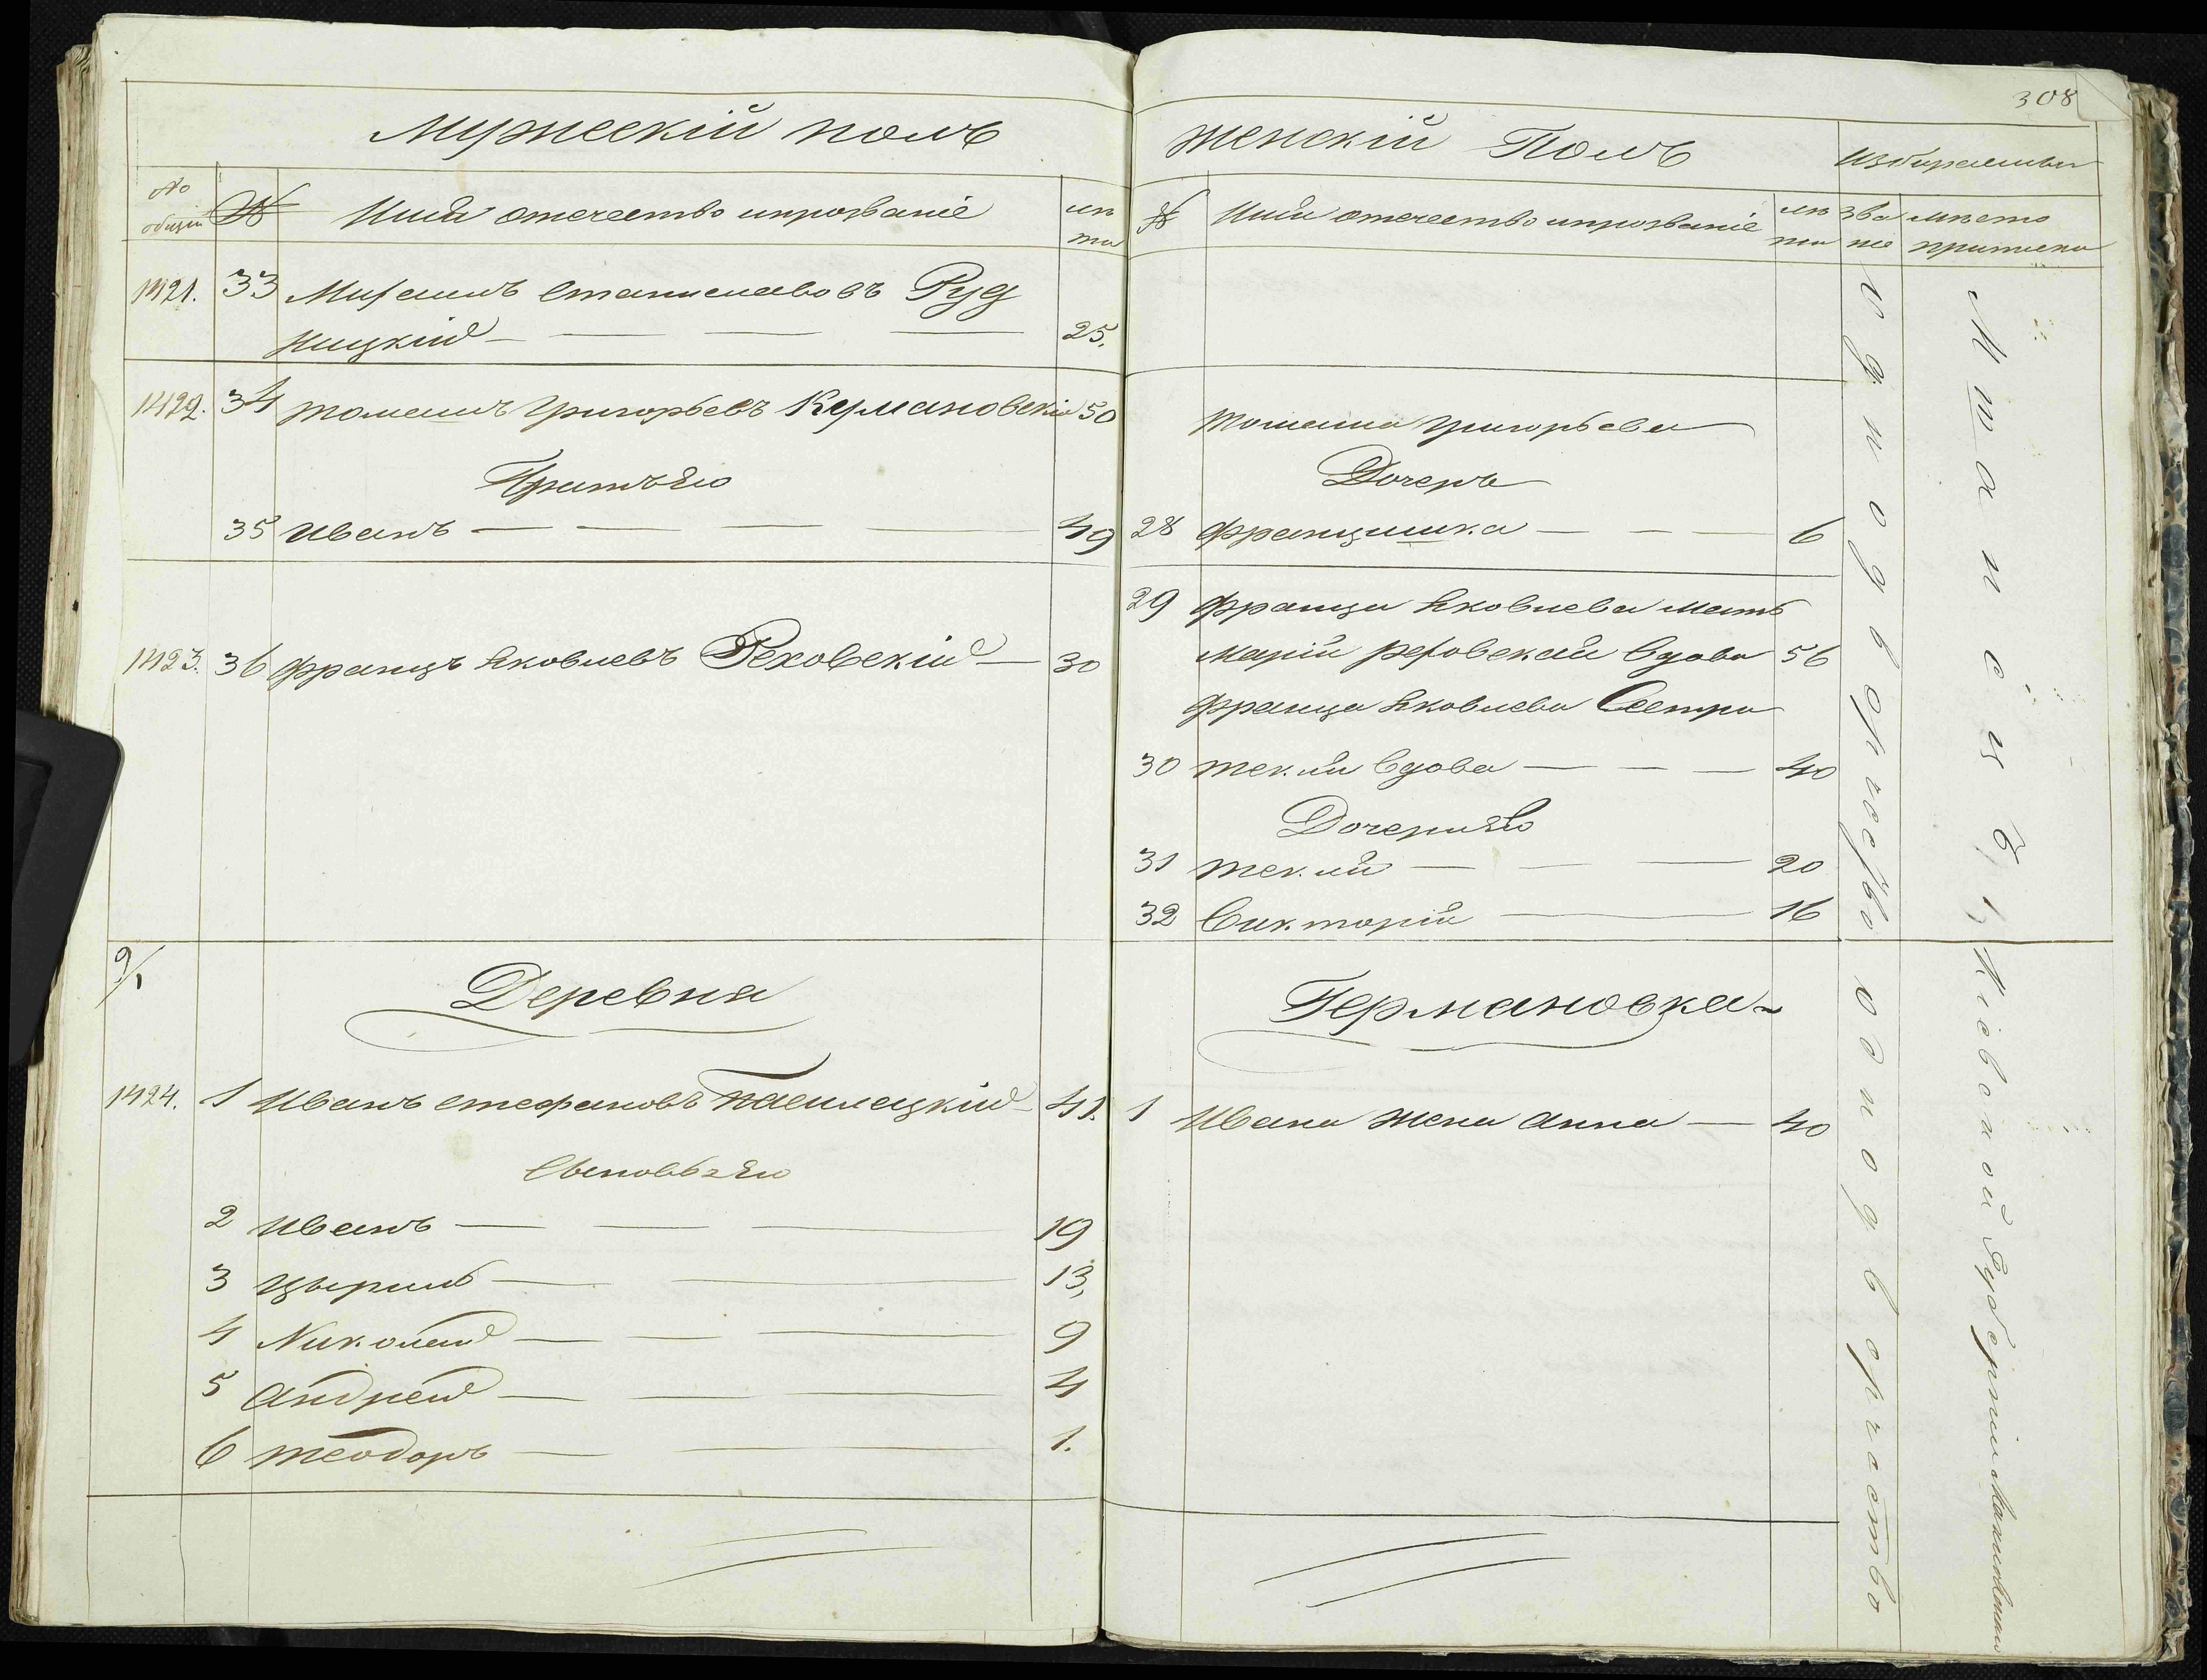 308
Мужескій полъ
№ общій
№
Имя отечество ипрозваніе
лѣта
1421. 33 Михаилъ Станиславовъ Руд
ницкій 25.
1422. 34 Томашъ Григорьевъ Кермановскій 50
Братъ Его
35 Иванъ 49
1423. 36 Францъ Яковлевъ Реховскій 30
9/1
Деревня
1424. 1 Иванъ Стефановъ 41.
Сыновья Его
2 Иванъ 19
3 Цырилъ 13,
4 Николай 9
5 Андрей 4
6 Теодоръ 1.
Женскій Полъ
№
Имя отечество ипрозваніе
лѣта
зва ніе
мѣсто приписки
Томаша Григорьева
Дочерь
28 Францишка 6
29 Франца Яковлева мать
Марія Реховская вдова 56
Франца Яковлева Сестра
30 Текля вдова 40
Дочери Ея
31 Текля 20
32 Викторія 16
Германовка
1 Ивана жена Анна 40
Однодворчество
Однодворчество
Кіевской Губерніи